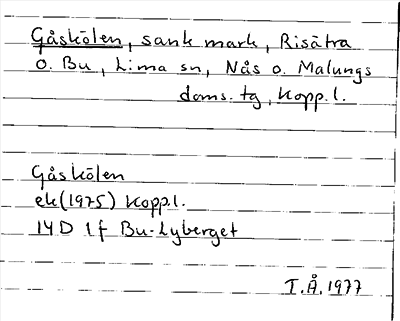 Gåskölen, sank mark, Risätra
o. Bu, Lima sn, Nås o. Malungs
doms. tg, Kopp. l.
Gåskölen
ek(1975) Kopp.l.
14D 1f Bu-Lyberget
T.Å. 1977